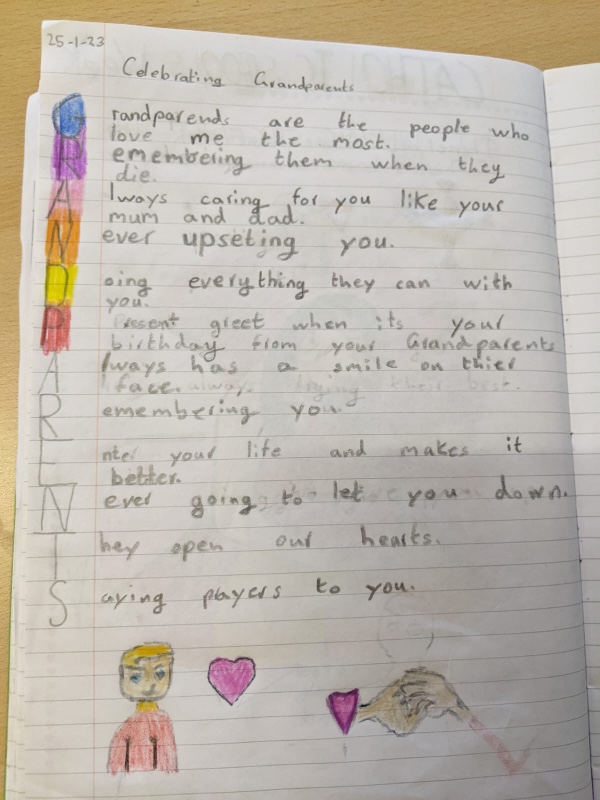 25-1-23
Celebrating Grandparents
Grandparends are the people who
love me the most.
Remembering them when they
die.
Always caring for you like your
mum and dad.
Never upseting you.
Doing everything they can with
you.
Present greet when its your
birthday from your Grandparents
Always has a smile on thier
face. always trying their best.
Remembering you.
Enter your life and makes it
better.
Never going to let you down.
They open our hearts.
Saying players to you.